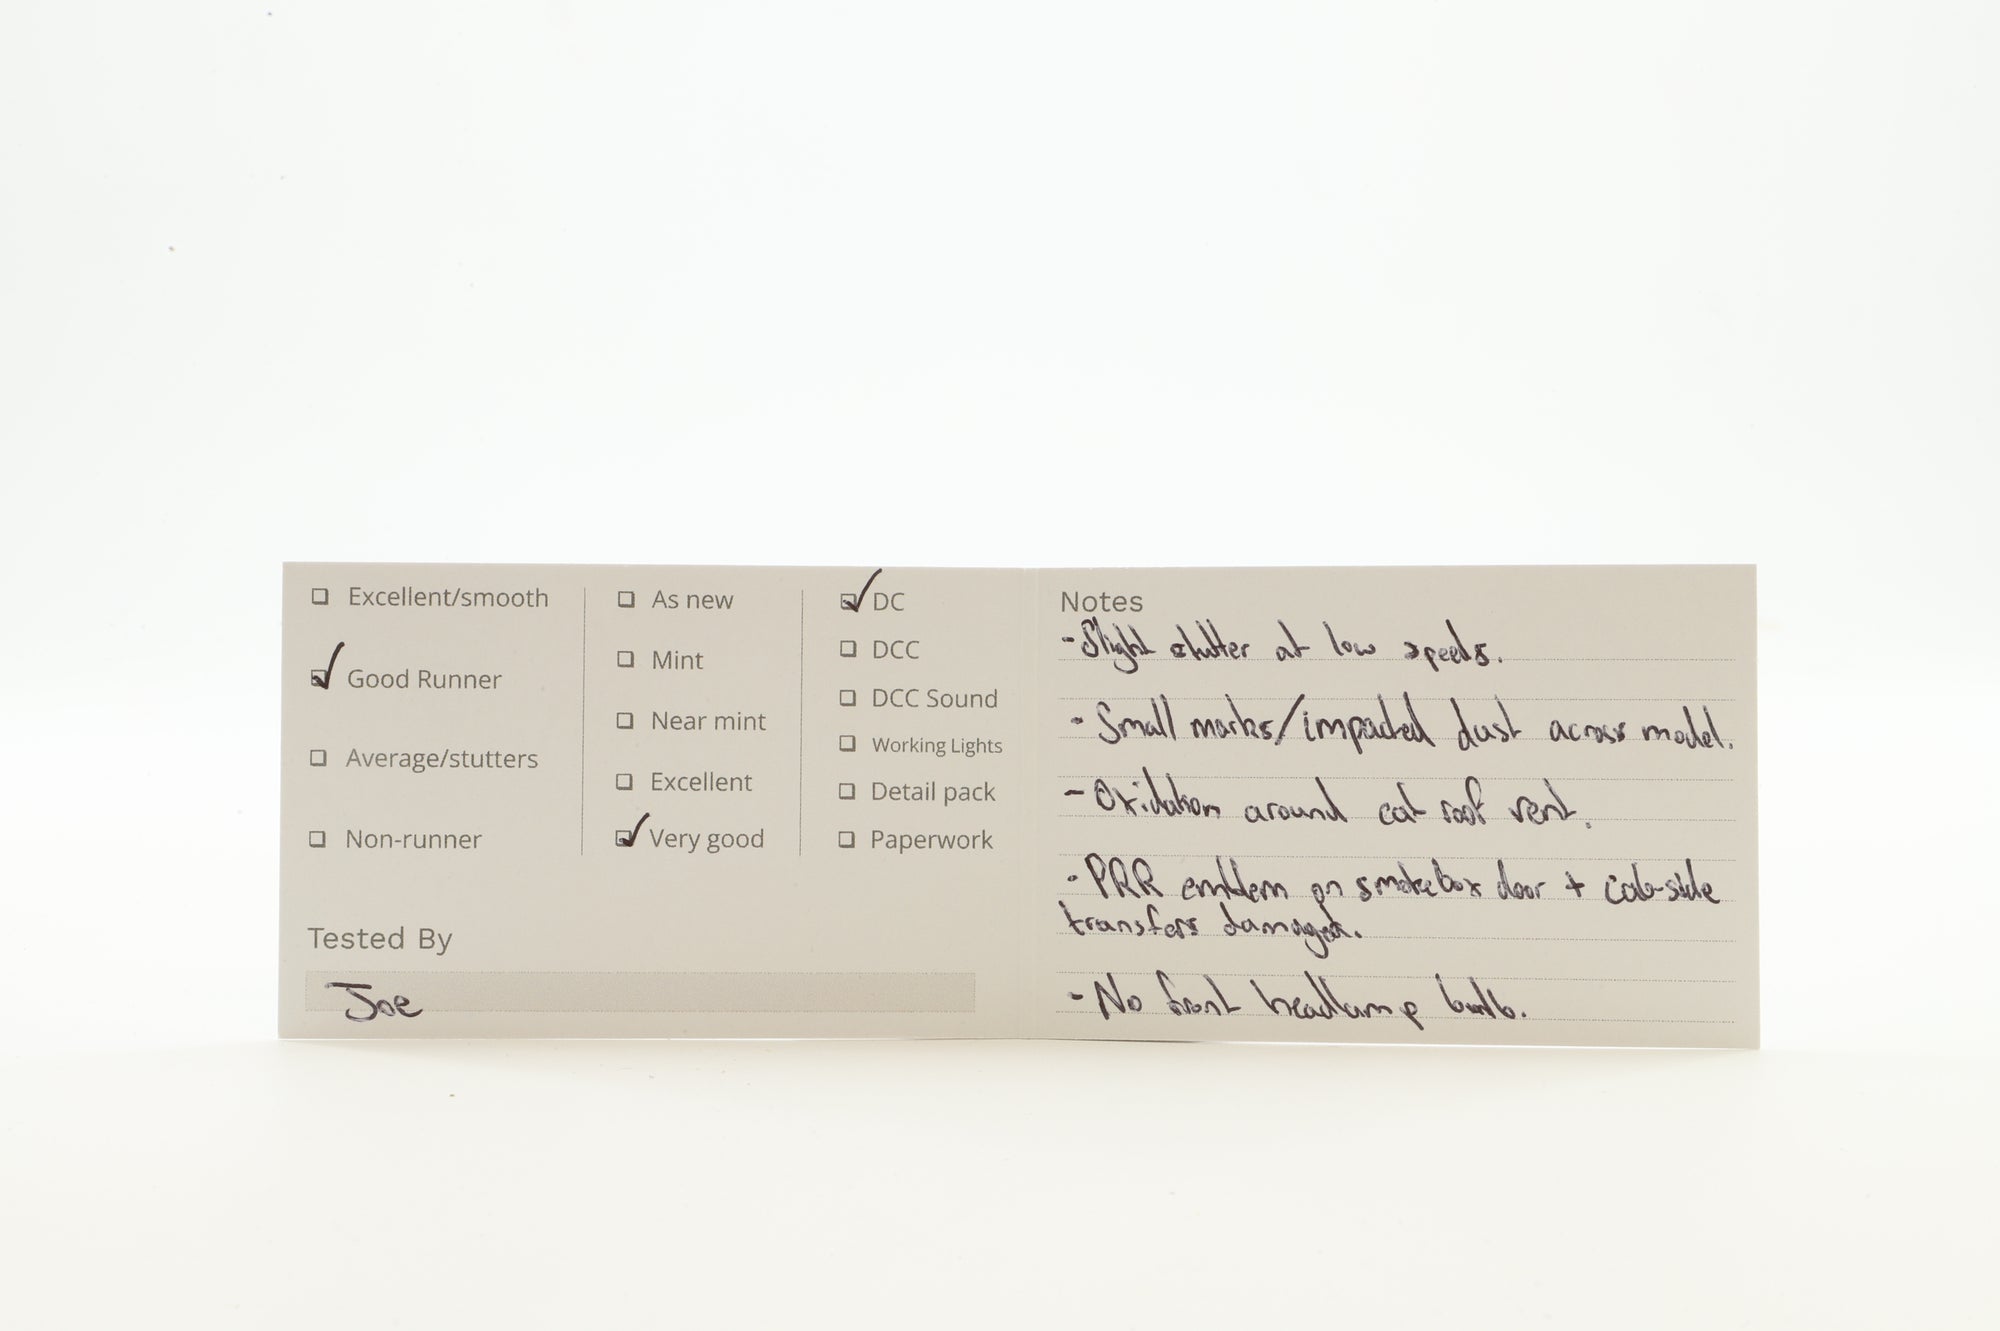 Excellent/smooth
Good Runner
Average/stutters
Non-runner
As new
Mint
Near mint
Excellent
Very good
DC
DCC
DCC Sound
Working Lights
Detail pack
Paperwork
Tested By
Joe
Notes
- Slight stutter at low speeds.
- Small marks/impacted dust across model.
- Oxidation around cab roof vent.
- PRR emblem on smokebox door + cab-side
transfers damaged.
- No front headlamp bulb.